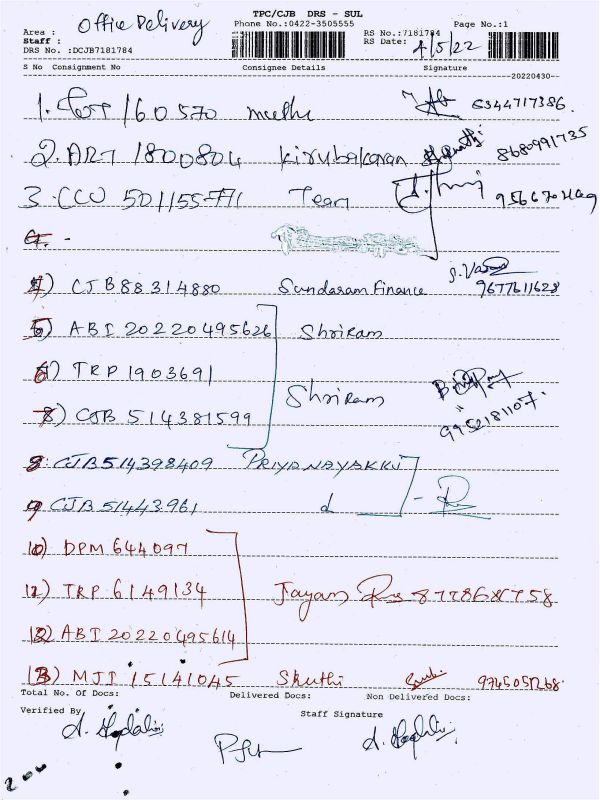 TPC/CJB DRS - SUL
Office Delivery
Phone No.:0422-3505555 RS No.:7181784 Page No.:1
Area :
Staff : RS Date: 4/5/22
DRS No. :DCJB7181784
S No Consignment No Consignee Details Signature
20220430
1. 160570
2. ART 1800804 Kirubakaran 8680991735
3. CCU Team
4) CJB 88314880 Sundaram Finance 9677611628
5) ABI 20220495626 Shriram
6) TRP 1903691
Shriram
7) CJB 514381599 9952181107
8 CJB 514398409 PRIYANAYAKKI
9 CJB 51443961
10) DPM 644097
11) TRP 6149134 Jayam
12) ABI 20220495614
13) MJI 15141045 Skuthi
Total No. Of Docs: Delivered Docs: Non Delivered Docs:
Verified By Staff Signature